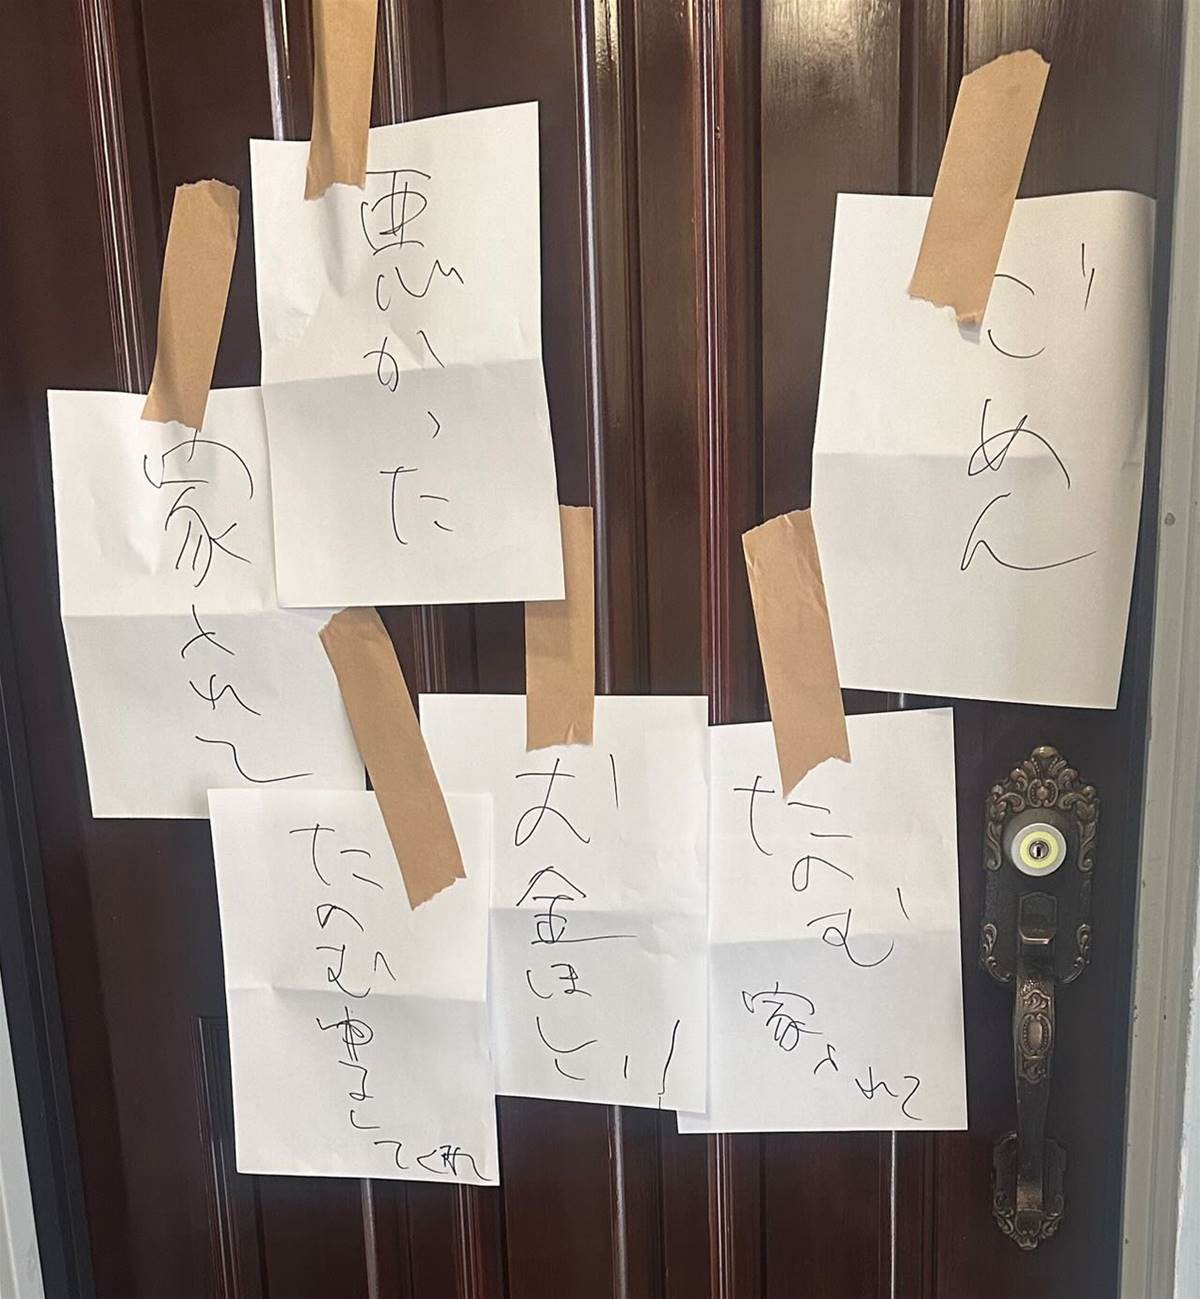 ごめん
悪かった
たのむ
家入れて
お金ほしい!
たのむゆるしてくれ
家